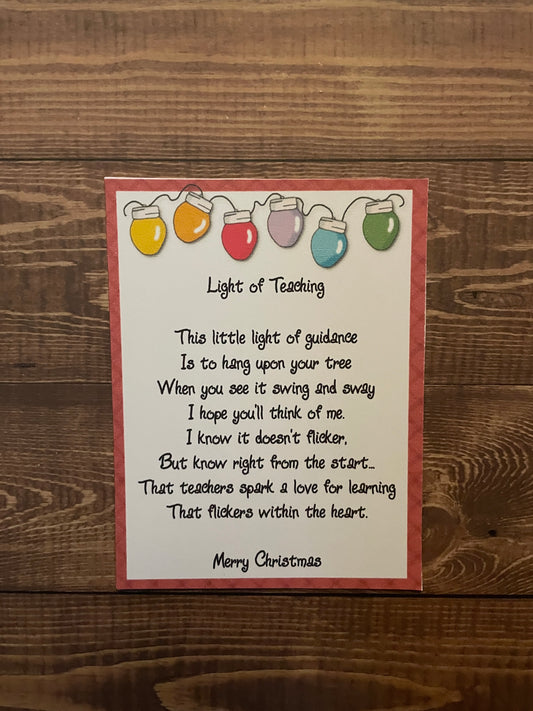 Light of Teaching
This little light of guidance
Is to hang upon your tree
When you see it swing and sway
I hope you'll think of me.
I know it doesn't flicker,
But know right from the start...
That teachers spark a love for learning
That flickers within the heart.
Merry Christmas